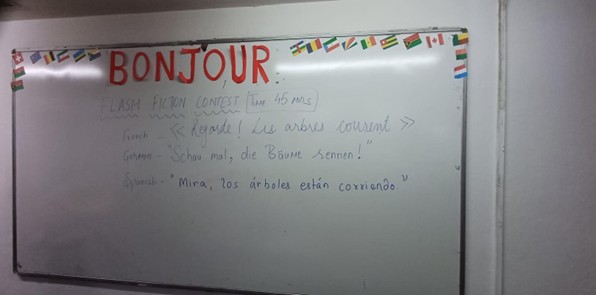 BONJOUR
FLASH FICTON CONTEST TIME 45 MINS
French - « Regarde! Les arbres courent »
German - "Schau mal, die BÄUME rennen!"
Spanish - "Mira, los árboles están corriendo."